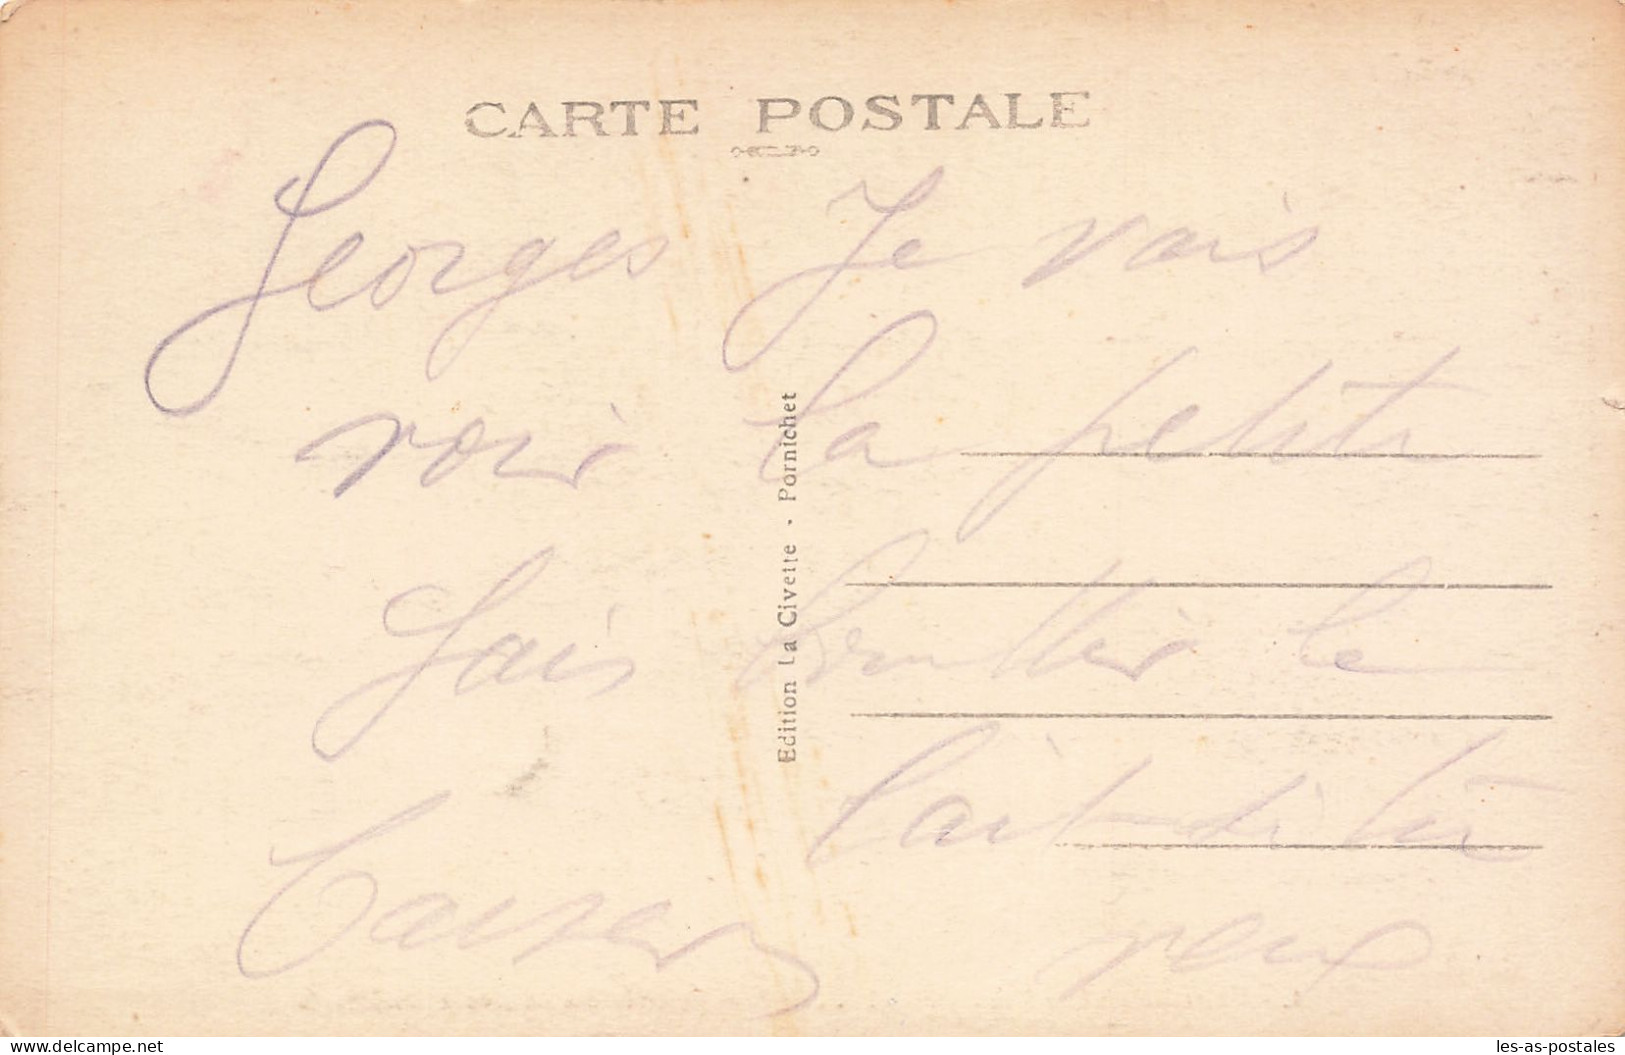 CARTE POSTALE
Georges Je vais
voir la petite
fais bouillir le
lait si tu
veux
Edition La Civette - Pornichet
www.delcampe.net
les-as-postales